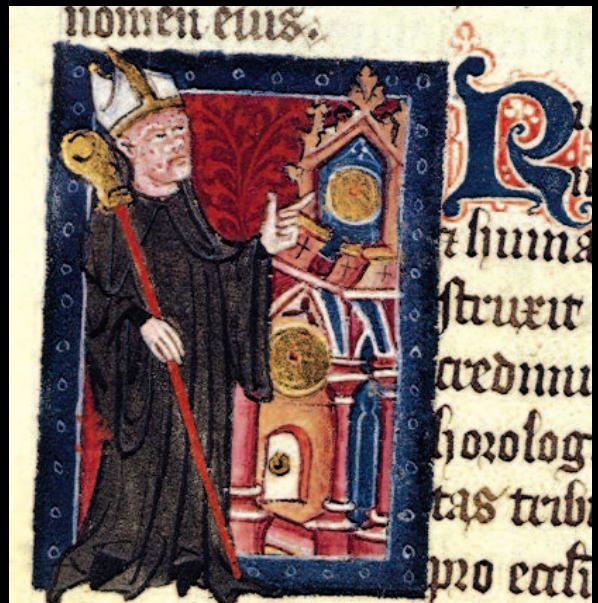 nomen eius.
R
⁊ huma
struxit
credimu
horolog
tas trib
pro eccli